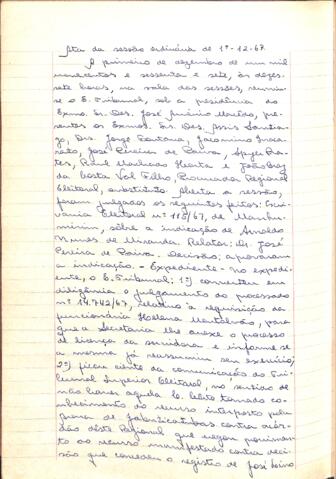 Ata da sessão ordinária de 1º-12-67.
A primeiro de dezembro de um mil
novecentos e sessenta e sete, às dezes-
sete horas, na sala das sessões, reuniu-
se o E. Tribunal, sob a presidência do
Exmo. Sr. Des. José
sentes os Exmos. Srs. Des. Assis Santia-
go, Drs. Jorge Fontana, Geronimo
José Pereira de Paiva,
Raul Machado Horta e João Braz
da Costa Val Filho, Procurador Regional
Eleitoral, substituto. Aberta a sessão,
foram julgados os seguintes feitos: Escri-
vania Eleitoral nº 118/67, de Manhu-
mirim, sôbre a indicação de Arnoldo
Nunes de Miranda. Relator: Dr. José
Pereira de Paiva. Decisão: aprovaram
a indicação. - Expediente - No expedi-
ente, o E. Tribunal: 1º) converteu em
diligência o julgamento do processado
nº 14.742/67, relativo à requisição da
funcionária Helena para
que a Secretaria lhe anexe o processo
de licença da servidora e informe se
a mesma já reassumiu seu exercício;
2º) ficou ciente da comunicação do Tri-
bunal Superior Eleitoral, no sentido de
não haver aquela C. Côrte tomado co-
nhecimento do recurso interposto pela
de Jaboticatubas contra acór-
dão dêste Regional que negou provimen-
to ao recurso manifestado contra deci-
são que concedeu o registro de José